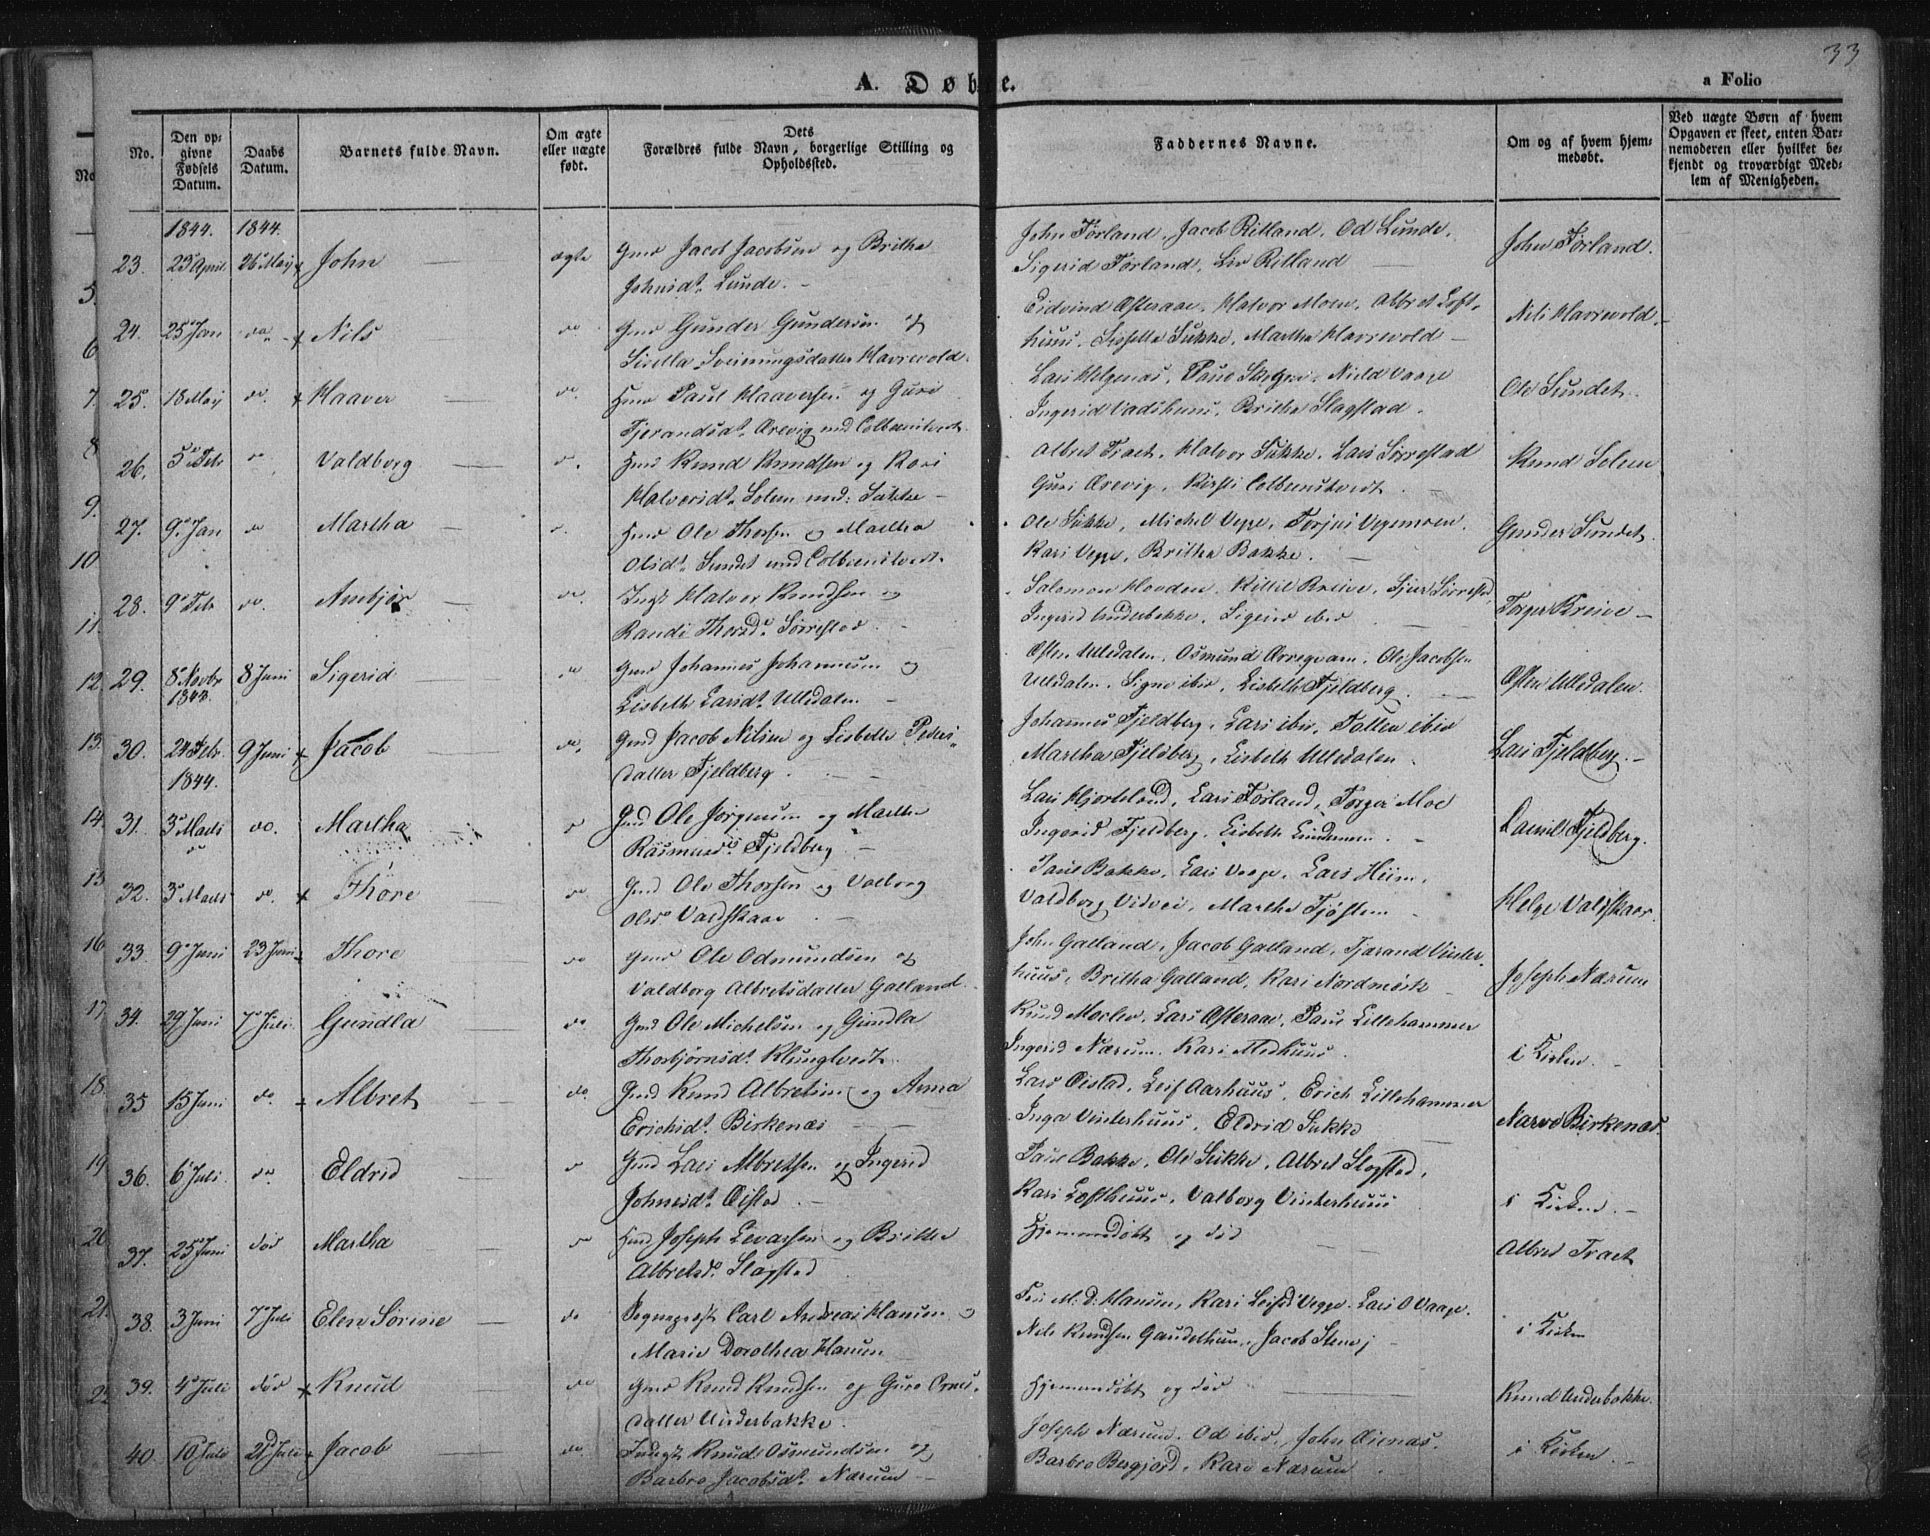 33
A. Døbte.
a Folio
No.
Den op-
givne
Fødsels
Datum.
Daabs
Datum.
Barnets fulde Navn.
Om ægte
eller uægte
født.
Dets
Forældres fulde Navn, borgerlige Stilling og
Opholdssted.
Faddernes Navne.
Om og af hvem hjem-
medøbt.
Ved uægte Børn af hvem
Opgaven er skeet, enten Bar-
nemoderen eller hvilket be-
kjendt og troværdigt Med-
lem af Menigheden.
1844. 1844.
23. 23 April 26 May John ægte Gmd Jacob Jacobsen og Britha
Johnsdt. Lunde.
John Førland, Jacob Ritland, Od Lunde,
Sigerid Førland, Liv Ritland
John Førland.
24. 25 Jan do Nils do Gmd Gunder Gundersen og
Sisella Sveinungsdatter Havrevold
Eidvind Østeraae, Halvor Moen, Albret Loft-
huus, Sissella Sukke, Martha Havrevold
Nils Havrevold.
25. 18 May do. Haaver do. Hmd Paul Haaversen og Guri
Tjerandsdt. Ørevig
Lars Helgenas, Vaage
Ingerid Vadshuus, Britha Slagstad.
Ole Sundet.
26. 5 Febr do Valdborg do. Hmd Knud Knudsen og Kari
Halvorsdt. Solem Sukke
Albret Traet, Halvor Sukke, Lars Sørrestad
Guri Ørevig, Kirsti
Knud Solem
27. 9 Jan do Martha Hmd Ole Thorsen og Martha
Olsdt. Sundet
Ole Sukke, Michel Vegge, Torjus Vegemoen
Kari Vegge, Britha Bakke.
Gunder Sundet.
28. 9 Febr do. Anbjør do. Halvor Knudsen og
Randi Thorsdt. Sørrestad
Salomon Hovden, Kittil Breive, Sørrestad
Ingerid Underbakke, Sigerid ibid
Torger Breive
29. 8 Novbr 8 Juni Sigerid do Gmd Johannes Johannesen og
1843. Lisbeth Larsdt. Ulledalen
Østen Ulledalen, Osmund Ørregvarn, Ole Jacobsen
Ulledalen, Signe ibid, Lisbeth Fjeldberg.
Østen Ulledalen.
30. 24 Febr 9 Juni Jacob do. Gmd Jacob Nilsen og Lisbeth Peders-
1844. datter Fjeldberg.
Johannes Fjeldberg, Lars ibid, Tollev ibid
Martha Fjeldberg, Lisbeth Ulledalen
Lars Fjeldberg.
31. 3 Marts do. Martha Gmd Ole Jørgensen og Marthe
Rasmusdt. Fjeldberg
Lars Hjorteland, Lars Førland, Torger Moe
Ingerid Fjeldberg, Lisbeth
Daniel Fjeldberg.
32. 3 Marts do. Thore do Gmd Ole Thorsen og Valborg
Olsdt. Vaidskaar
Paul Bakke, Lars Vaage, Lars Hiim,
Valdborg Vidvei, Marthe Tjøstem
Helge Valdskaar.
33. 9 Juni 23 Juni Thore do Gmd Ole Odmundsen og
Valdborg Albretsdatter Galland
John Galland, Jacob Galland, Tjærand Vinter-
huus, Britha Galland, Kari Nordmørk
Joseph Nærum
34. 29 Juni 7 Juli Gundla do Gmd Ole Michelsen og Gundla
Thorbjørnsdt. Klungtvedt
Knud Moclev, Lars Østeraae, Paul Lillehammer
Ingerid Nærum, Kari Medhuus
i Kirken
35 15 Juni do Albret do Gmd Knud Albretsen og Anna
Erichsdt. Birkenæs
Lars Øistad, Leif Aarhuus, Erich Lillehammer
Inga Vinterhuus, Eldrid Sukke
Narve Birkenæs.
36. 6 Juli do Eldrid Gmd Lars Albretsen og Ingerid
Johnsdt. Øistad
Paul Bakke, Ole Sukke, Albret Slagstad,
Kari Lofthuus, Valborg Vinterhuus
i Kirken
37. 25 Juni død Martha Hmd Joseph Levarsen og Britha
Albretsdt. Slagstad
Hjemmedøbt og død
Albret Traet
38. 3 Juni 7 Juli Elen Sørine do Sogneprest Carl Andreas Hansen og
Marie Dorothea Hansen
M: D: Hansen, Kari Leifsd Vegge, Lars O Vaage.
Nils Knudsen Jacob
i Kirken
39. 4 Juli død Knud do Gmd Knud Knudsen og Guro
datter Underbakke
Hjemmedøbt og død
Knud Underbakke
40. 10 Juli 21 Juli Jacob do Knud Osmundsen og
Barbro Jacobsdt. Nærum
Joseph Nærum, Od ibid, John Øienæs.
Barbro Bergjord, Kari Nærum
i Kirken